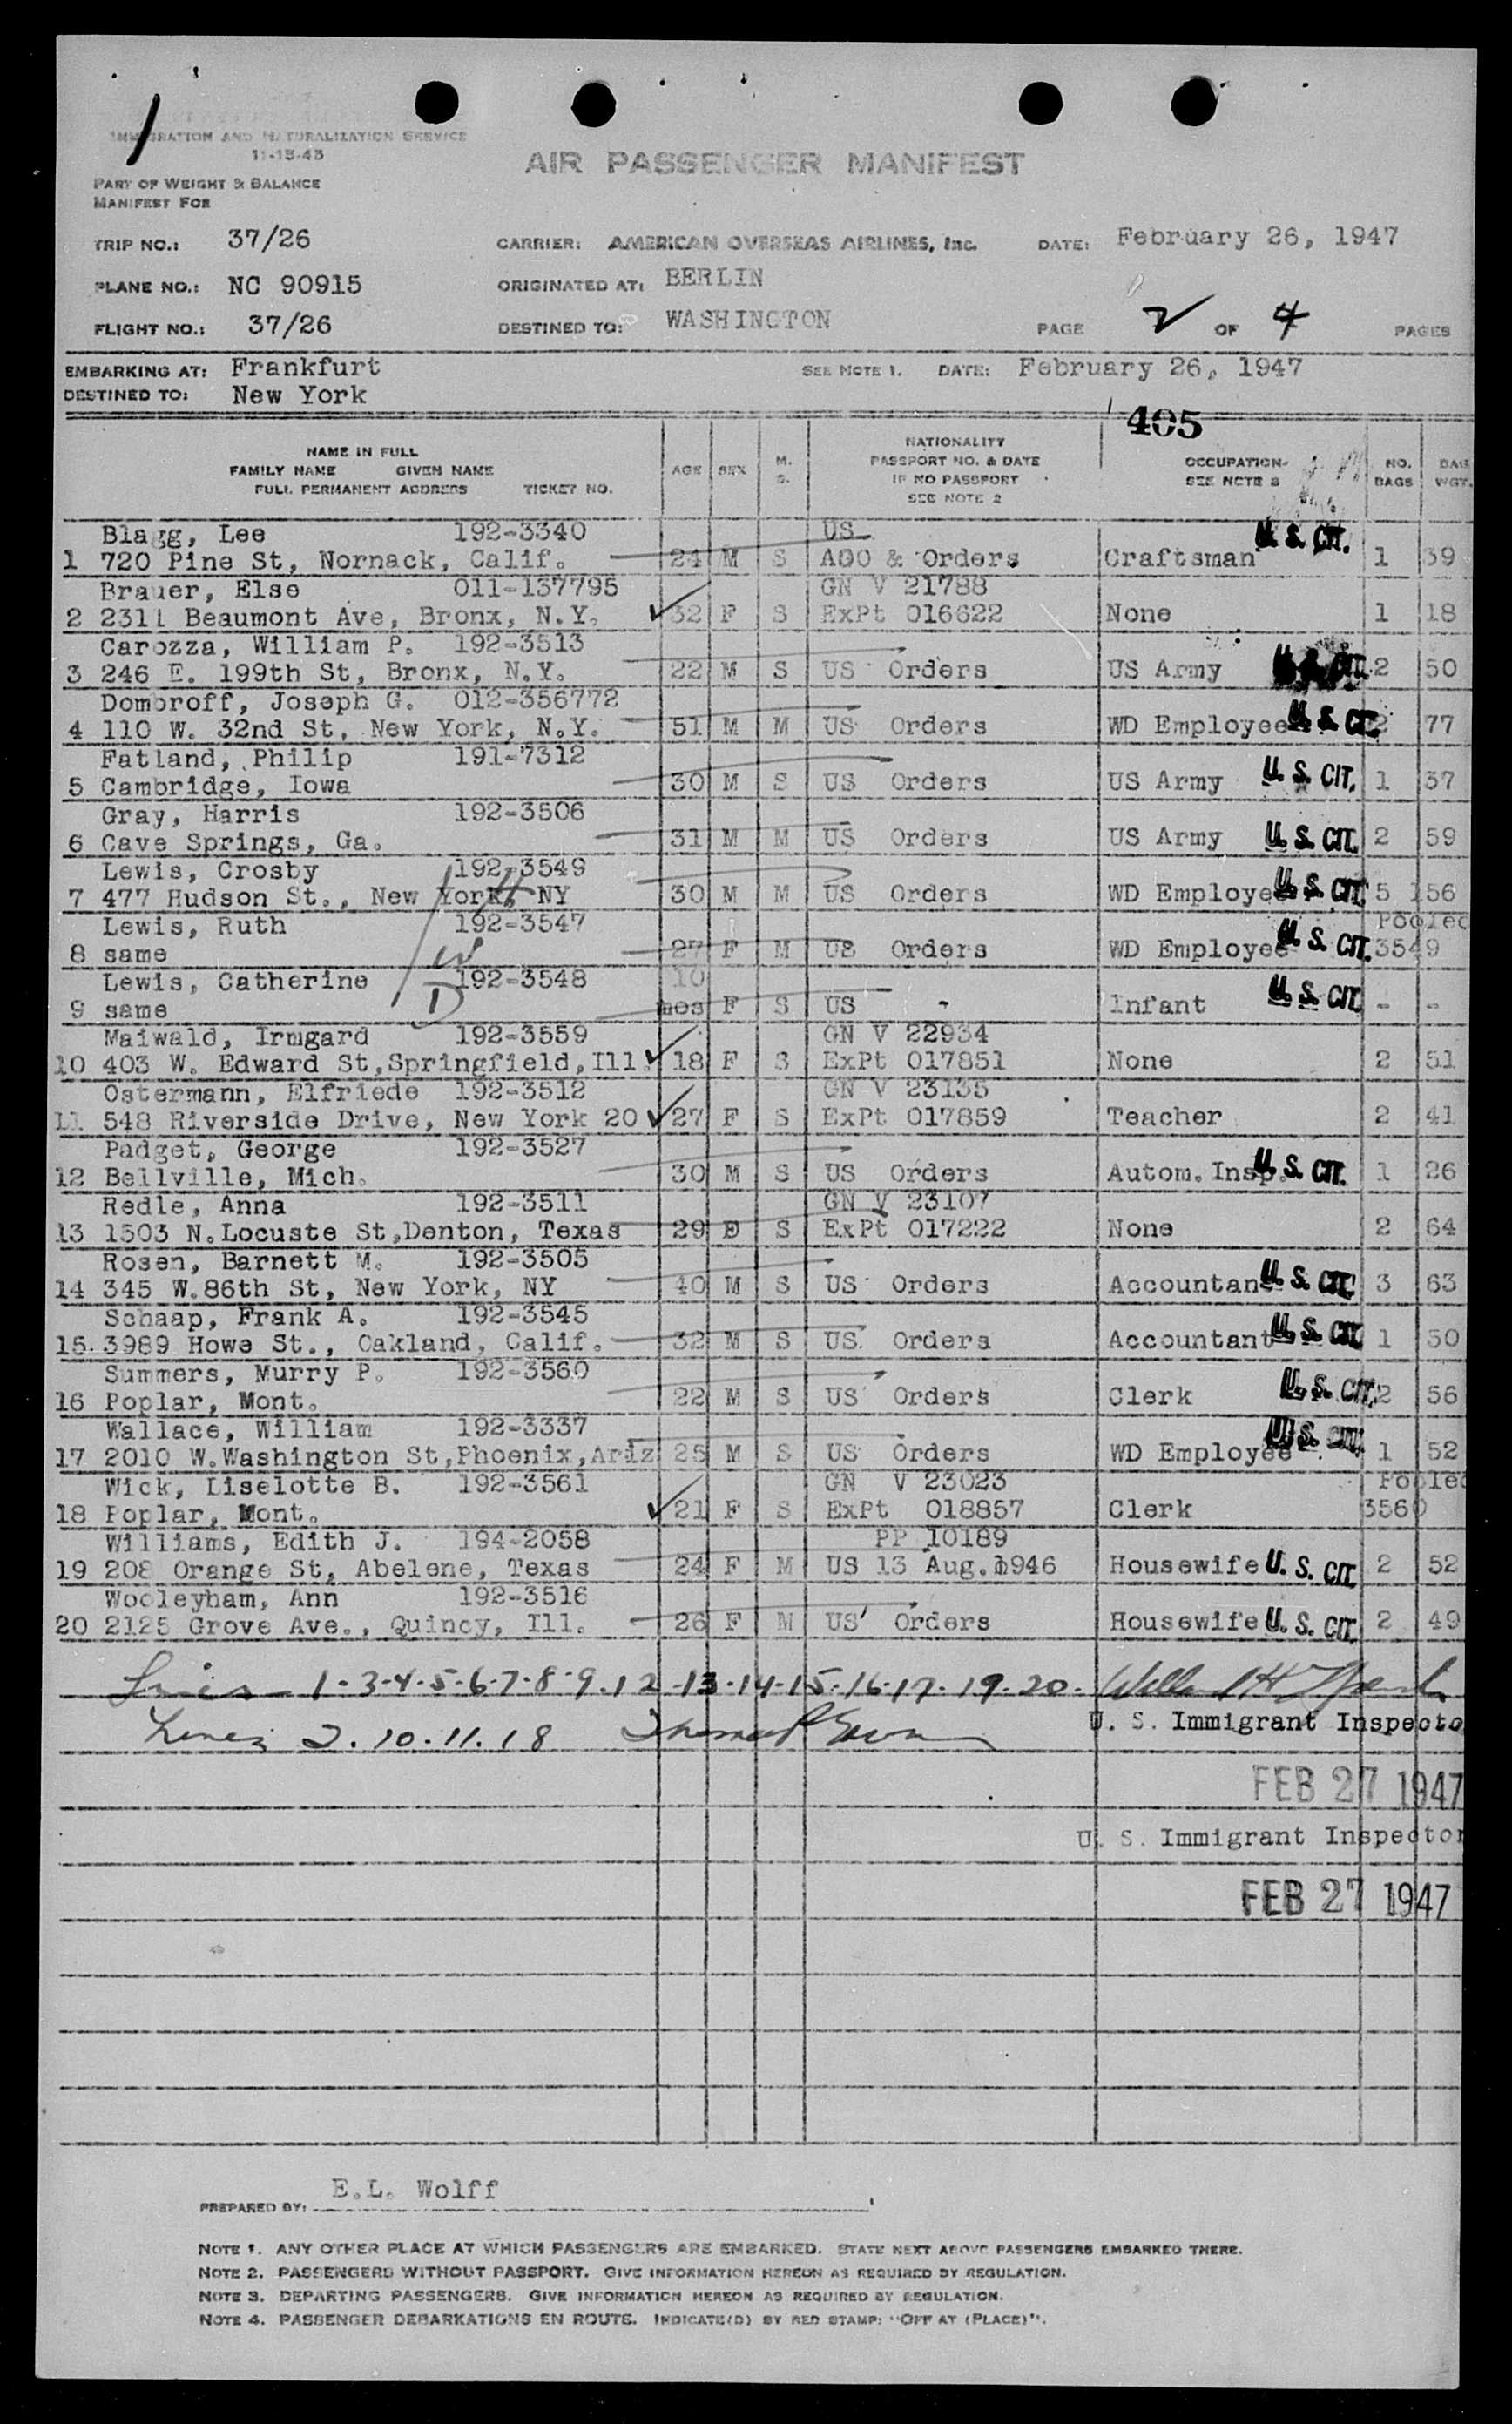 IMMIGRATION AND NATURALIZATION SERVICE
11-15-45
AIR PASSENGER MANIFEST
PART OF WEIGHT & BALANCE
MANIFEST FOR
TRIP NO.: 37/26 CARRIER: AMERICAN OVERSEAS AIRLINES, Inc. DATE: February 26, 1947
PLANE NO.: NC 90915 ORIGINATED AT: BERLIN
FLIGHT NO.: 37/26 DESTINED TO: WASHINGTON PAGE 2 OF 4 PAGES
EMBARKING AT: Frankfurt SEE NOTE 1. DATE: February 26, 1947
DESTINED TO: New York
405
NAME IN FULL
FAMILY NAME GIVEN NAME
FULL PERMANENT ADDRESS TICKET NO.
AGE SEX M. S.
NATIONALITY
PASSPORT NO. & DATE
IF NO PASSPORT
SEE NOTE 2
OCCUPATION
SEE NOTE 3
NO. BAGS
BAG WGT.
Blagg, Lee 192-3340 US U.S. CIT.
1 720 Pine St, Nornack, Calif. 24 M S AGO & Orders Craftsman 1 39
Brauer, Else 011-137795 GN V 21788
2 2311 Beaumont Ave, Bronx, N.Y. 32 F S ExPt 016622 None 1 18
Carozza, William P. 192-3513
3 246 E. 199th St, Bronx, N.Y. 22 M S US Orders US Army U.S. CIT. 2 50
Dombroff, Joseph G. 012-356772
4 110 W. 32nd St, New York, N.Y. 51 M M US Orders WD Employee U.S. CIT. 2 77
Fatland, Philip 191-7312
5 Cambridge, Iowa 30 M S US Orders US Army U.S. CIT. 1 37
Gray, Harris 192-3506
6 Cave Springs, Ga. 31 M M US Orders US Army U.S. CIT. 2 59
Lewis, Crosby 192-3549
7 477 Hudson St., New York, NY H 30 M M US Orders WD Employee U.S. CIT. 5 156
Lewis, Ruth 192-3547 Pooled
8 same W 27 F M US Orders WD Employee U.S. CIT. 3549
Lewis, Catherine 192-3548 10
9 same D mos F S US - Infant U.S. CIT. - -
Maiwald, Irmgard 192-3559 GN V 22934
10 403 W. Edward St,Springfield,Ill. 18 F S ExPt 017851 None 2 51
Ostermann, Elfriede 192-3512 GN V 23135
11 548 Riverside Drive, New York 20 27 F S ExPt 017859 Teacher 2 41
Padget, George 192-3527
12 Bellville, Mich. 30 M S US Orders Autom. Insp. U.S. CIT. 1 26
Redle, Anna 192-3511 GN V 23107
13 1503 N.Locuste St,Denton, Texas 29 S ExPt 017222 None 2 64
Rosen, Barnett M. 192-3505
14 345 W.86th St, New York, NY 40 M S US Orders Accountant U.S. CIT. 3 63
Schaap, Frank A. 192-3545
15. 3989 Howe St., Oakland, Calif. 32 M S US Orders Accountant U.S. CIT. 1 50
Summers, Murry P. 192-3560
16 Poplar, Mont. 22 M S US Orders Clerk U.S. CIT. 2 56
Wallace, William 192-3337
17 2010 W.Washington St,Phoenix,Ariz 25 M S US Orders WD Employee U.S. CIT. 1 52
Wick, Liselotte B. 192-3561 GN V 23023 Pooled
18 Poplar, Mont. 21 F S ExPt 018857 Clerk 3560
Williams, Edith J. 194-2058 PP 10189
19 208 Orange St, Abelene, Texas 24 F M US 13 Aug.1946 Housewife U.S. CIT. 2 52
Wooleyham, Ann 192-3516
20 2125 Grove Ave., Quincy, Ill. 26 F M US Orders Housewife U.S. CIT. 2 49
Lines 1-3-4-5-6-7-8-9-12-13-14-15-16-17-19-20.
U. S. Immigrant Inspector
Lines 2.10.11.18
FEB 27 1947
U. S. Immigrant Inspector
FEB 27 1947
PREPARED BY: E.L. Wolff
NOTE 1. ANY OTHER PLACE AT WHICH PASSENGERS ARE EMBARKED. STATE NEXT ABOVE PASSENGERS EMBARKED THERE.
NOTE 2. PASSENGERS WITHOUT PASSPORT. GIVE INFORMATION HEREON AS REQUIRED BY REGULATION.
NOTE 3. DEPARTING PASSENGERS. GIVE INFORMATION HEREON AS REQUIRED BY REGULATION.
NOTE 4. PASSENGER DEBARKATIONS EN ROUTE. INDICATE(D) BY RED STAMP: "OFF AT (PLACE)".